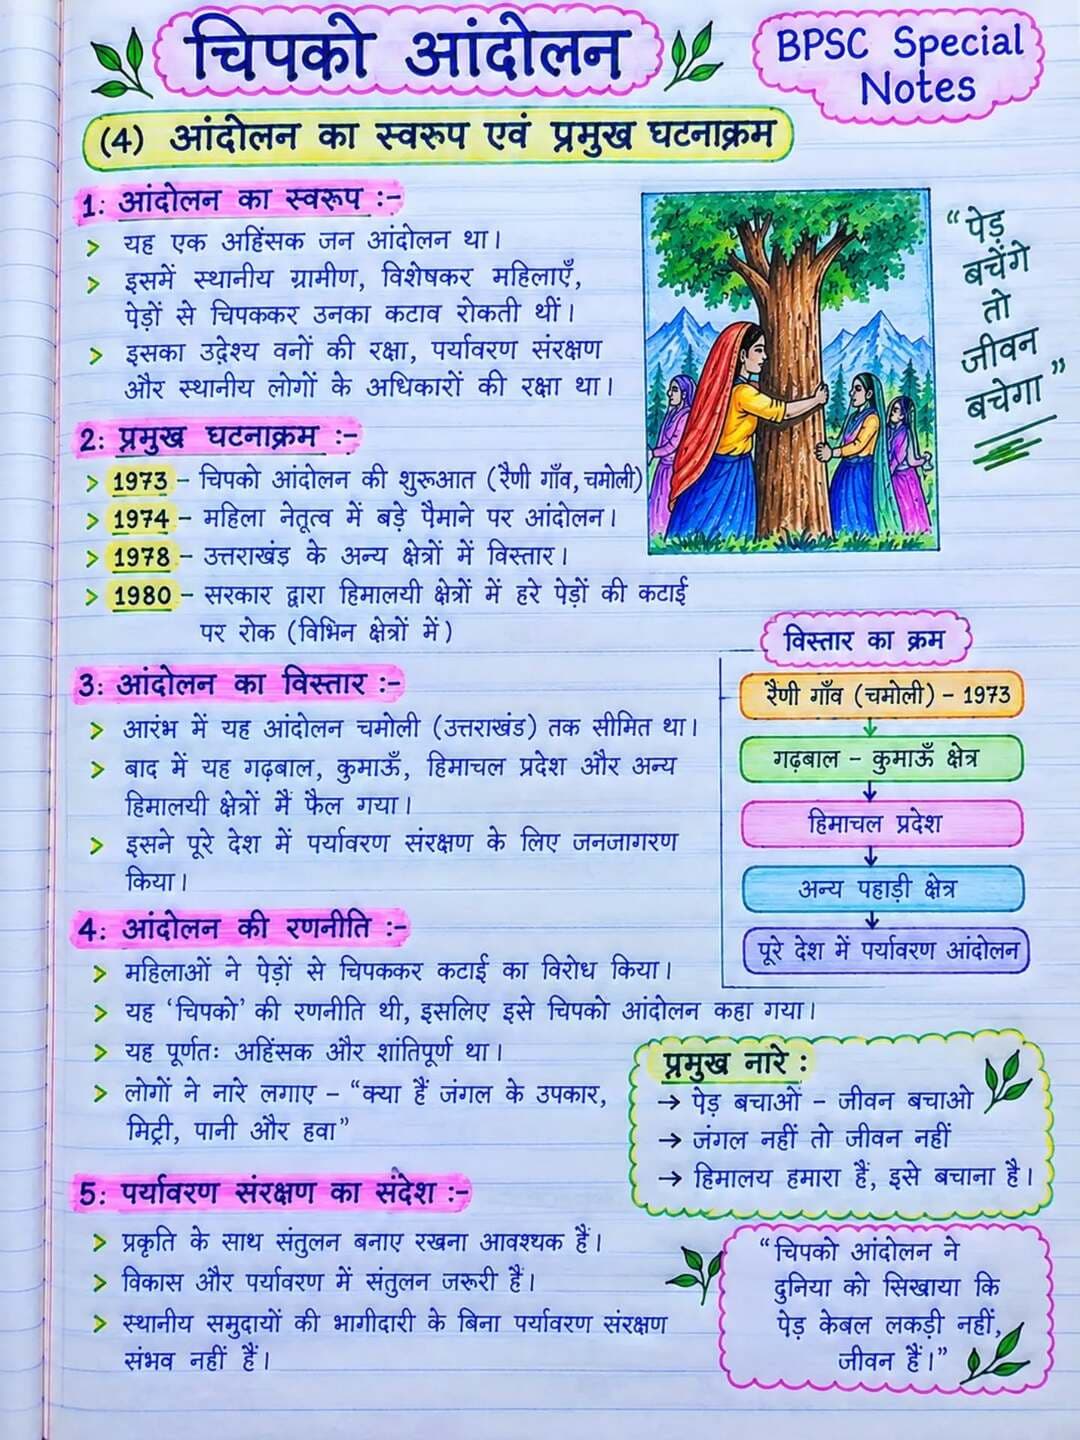 चिपको आंदोलन
BPSC Special
Notes
(4) आंदोलन का स्वरूप एवं प्रमुख घटनाक्रम
1: आंदोलन का स्वरूप :-
> यह एक अहिंसक जन आंदोलन था।
> इसमें स्थानीय ग्रामीण, विशेषकर महिलाएँ,
पेड़ों से चिपककर उनका कटाव रोकती थीं।
> इसका उद्देश्य वनों की रक्षा, पर्यावरण संरक्षण
और स्थानीय लोगों के अधिकारों की रक्षा था।
"पेड़
बचेंगे
तो
जीवन
बचेगा"
2: प्रमुख घटनाक्रम :-
> 1973 - चिपको आंदोलन की शुरूआत (रैणी गाँव, चमोली)
> 1974 - महिला नेतृत्व में बड़े पैमाने पर आंदोलन।
> 1978 - उत्तराखंड के अन्य क्षेत्रों में विस्तार।
> 1980 - सरकार द्वारा हिमालयी क्षेत्रों में हरे पेड़ों की कटाई
पर रोक (विभिन क्षेत्रों में)
3: आंदोलन का विस्तार :-
> आरंभ में यह आंदोलन चमोली (उत्तराखंड) तक सीमित था।
> बाद में यह गढ़बाल, कुमाऊँ, हिमाचल प्रदेश और अन्य
हिमालयी क्षेत्रों मैं फैल गया।
> इसने पूरे देश में पर्यावरण संरक्षण के लिए जनजागरण
किया।
विस्तार का क्रम
रैणी गाँव (चमोली) - 1973
गढ़बाल - कुमाऊँ क्षेत्र
हिमाचल प्रदेश
अन्य पहाड़ी क्षेत्र
पूरे देश में पर्यावरण आंदोलन
4: आंदोलन की रणनीति :-
> महिलाओं ने पेड़ों से चिपककर कटाई का विरोध किया।
> यह 'चिपको' की रणनीति थी, इसलिए इसे चिपको आंदोलन कहा गया।
> यह पूर्णतः अहिंसक और शांतिपूर्ण था।
> लोगों ने नारे लगाए - "क्या हैं जंगल के उपकार,
मिट्री, पानी और हवा"
प्रमुख नारे :
→ पेड़ बचाओं - जीवन बचाओ
→ जंगल नहीं तो जीवन नहीं
→ हिमालय हमारा हैं, इसे बचाना है।
5: पर्यावरण संरक्षण का संदेश :-
> प्रकृति के साथ संतुलन बनाए रखना आवश्यक हैं।
> विकास और पर्यावरण में संतुलन जरूरी हैं।
> स्थानीय समुदायों की भागीदारी के बिना पर्यावरण संरक्षण
संभव नहीं हैं।
"चिपको आंदोलन ने
दुनिया को सिखाया कि
पेड़ केबल लकड़ी नहीं,
जीवन हैं।"